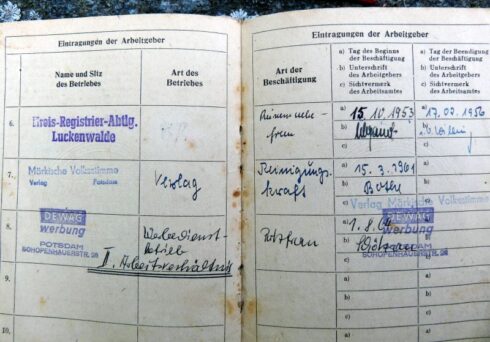 Eintragungen der Arbeitgeber
Name und Sitz
des Betriebes
Art des
Betriebes
6.
Kreis-Registrier-Abtlg.
Luckenwalde
7.
Märkische Volksstimme
Verlag Potsdam
Verlag
8
DEWAG
werbung
POTSDAM
SCHOPENHAUERSTR. 26
Werbedienst-
betrieb
II. Arbeitsverhältnis
9.
10.
Eintragungen der Arbeitgeber
Art der
Beschäftigung
a) Tag des Beginns
der Beschäftigung
b) Unterschrift
des Arbeitgebers
c) Sichtvermerk
des Arbeitsamtes
a) Tag der Beendigung
der Beschäftigung
b) Unterschrift
des Arbeitgebers
c) Sichtvermerk
des Arbeitsamtes
a) 15. IV. 1953
a) 17.
1956
b)
b)
c)
c)
Reinigungs-
kraft
a) 15. 3. 1961
a)
b)
b)
c)
Verlag Märkische Volksstimme
Putzfrau
a) 1. 8.
DEWAG
werbung
POTSDAM
SCHOPENHAUERSTR. 26
a)
b)
c)
a)
b)
c)
a)
a)